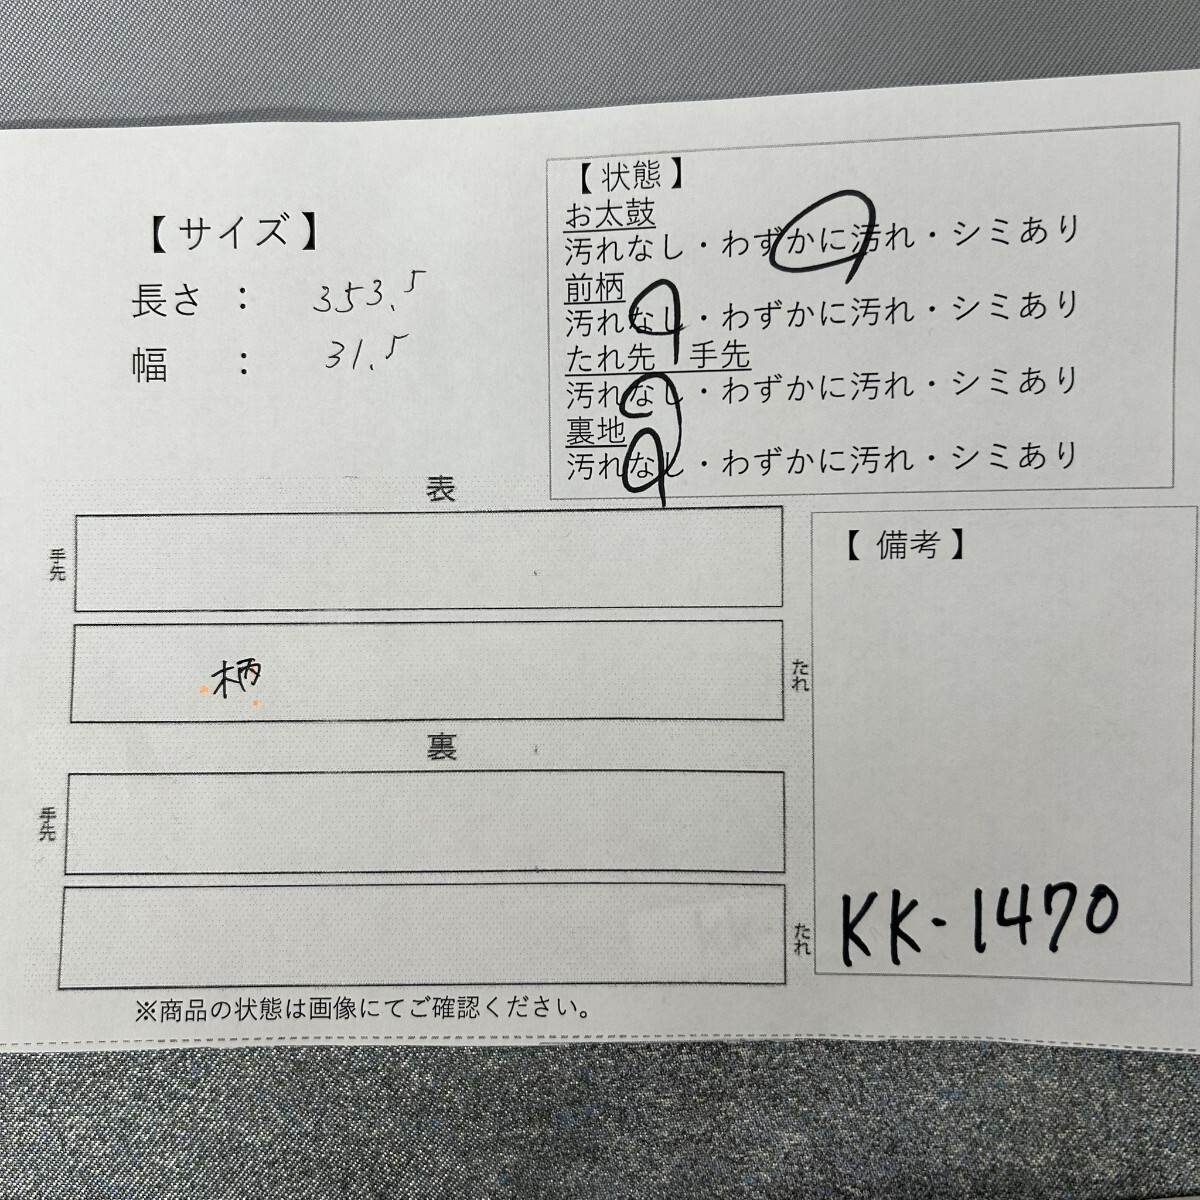 【 サイズ 】
長さ ： 353.5
幅 ： 31.5
【 状態 】
お太鼓
汚れなし・わずかに汚れ・シミあり
前柄
汚れなし・わずかに汚れ・シミあり
たれ先 手先
汚れなし・わずかに汚れ・シミあり
裏地
汚れなし・わずかに汚れ・シミあり
表
手先
柄
たれ
裏
手先
たれ
【 備考 】
KK-1470
※商品の状態は画像にてご確認ください。